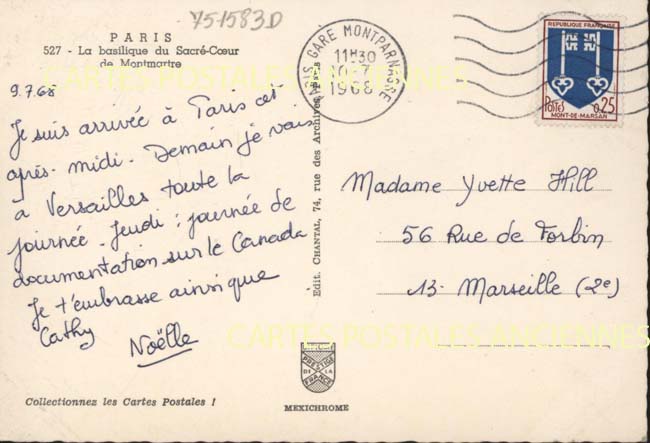 751583D
PARIS
527 - La basilique du Sacré-Cœur
de Montmartre
9.7.68
Je suis arrivée à Paris cet
après-midi. Demain je vais
à Versailles toute la
journée. Jeudi : journée de
documentation sur le Canada
Je t'embrasse ainsi que
Cathy
Noëlle
Collectionnez les Cartes Postales !
Edit. CHANTAL, 74, rue des Archives, Paris
PRESTIGE
DE LA
FRANCE
MEXICHROME
PARIS GARE MONTPARNASSE
11H30
10-7
1968
REPUBLIQUE FRANÇAISE
POSTES
0,25
MONT-DE-MARSAN
Madame Yvette Hill
56 Rue de Forbin
13. Marseille (2e)
CARTES POSTALES ANCIENNES
CARTES POSTALES ANCIENNES